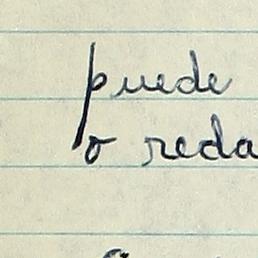 puede
o reda